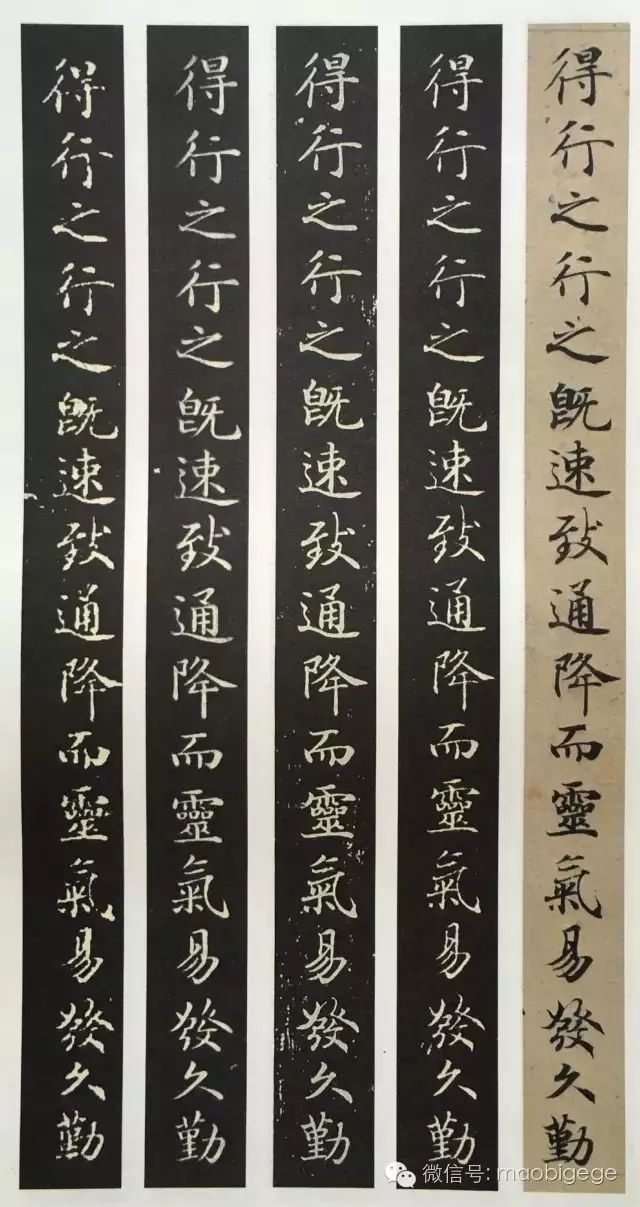 得行之行之既速致通降而靈氣易發久勤
得行之行之既速致通降而靈氣易發久勤
得行之行之既速致通降而靈氣易發久勤
得行之行之既速致通降而靈氣易發久勤
得行之行之既速致通降而靈氣易發久勤
微信号: maobigege